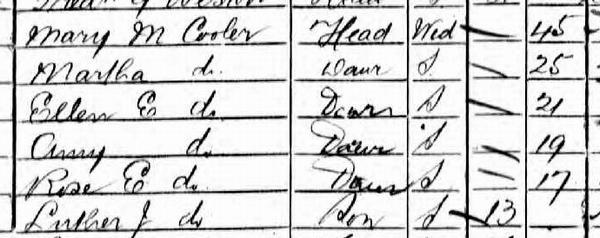 Mary M Cooler Head Wid 45
Martha do. Daur S. 25
Ellen E do. Daur S 21
Amy do. Daur S 19
Rose E do. Daur S 17
Luther J do Son S 13